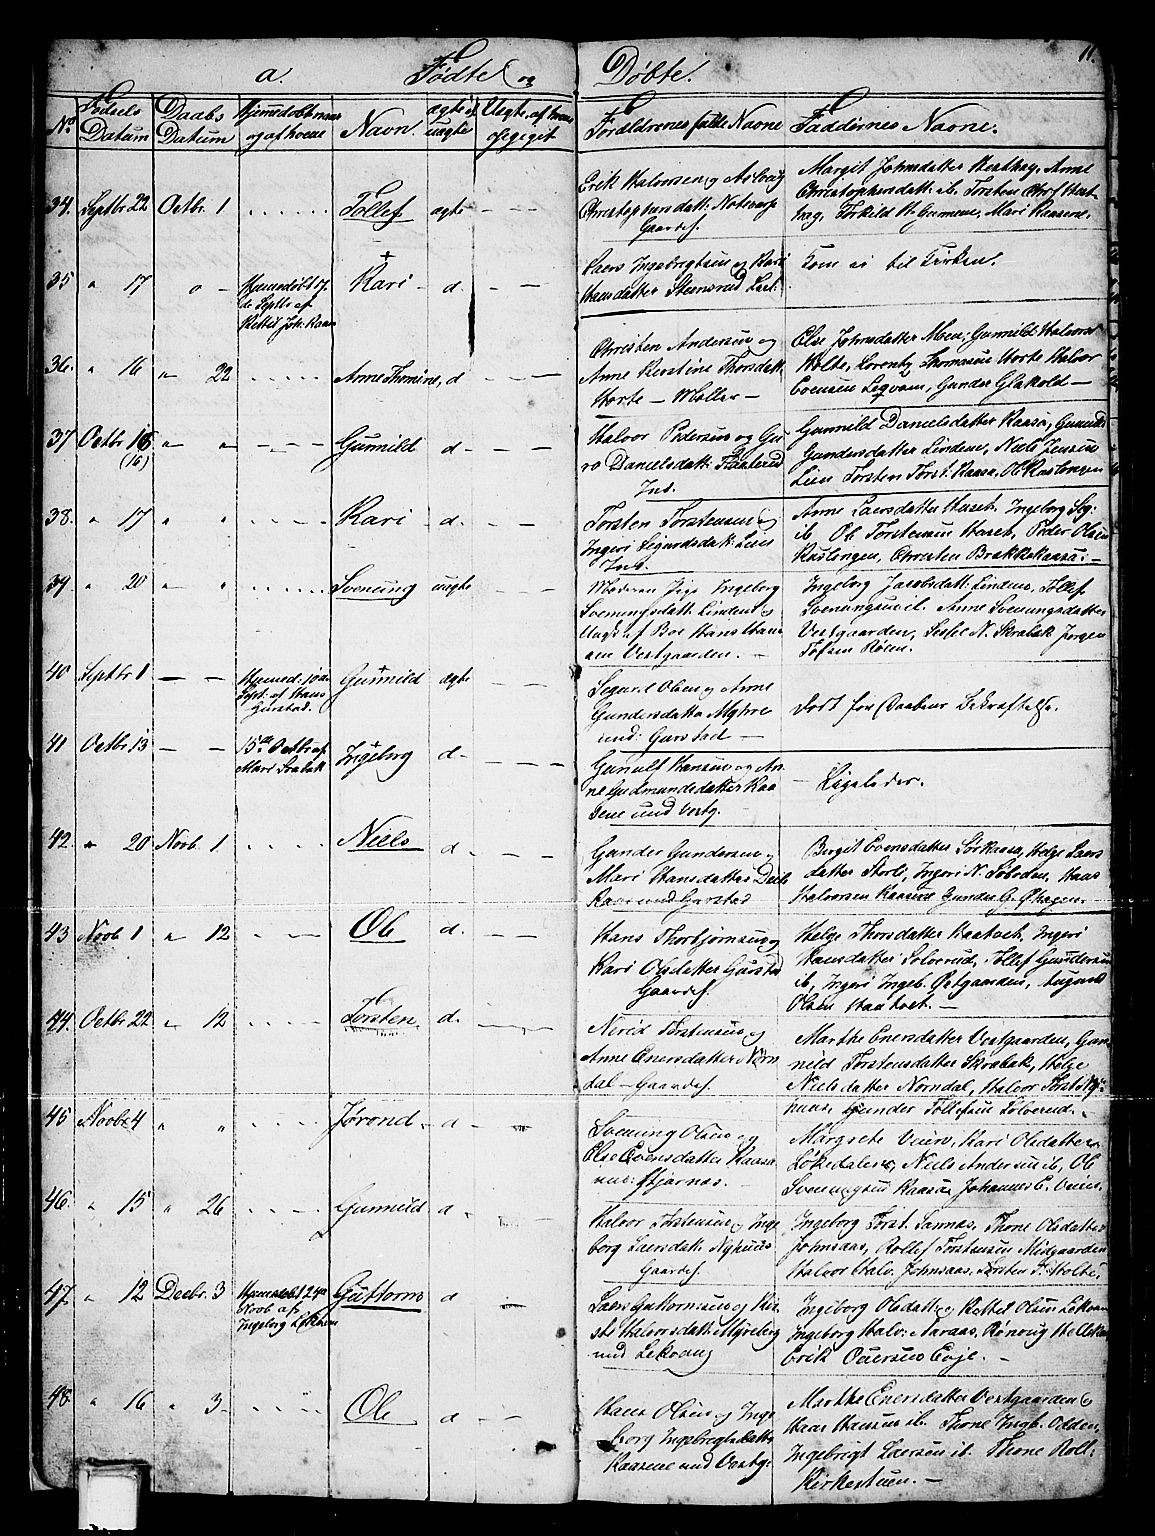 11.
a. Fødte og Døbte.
No. Fødsels Datum Daabs Datum Hjemmedøbt naar og af hvem Navn ægte el uægte Uægte, af hvem opgivet Forældrenes fulde Navne Faddernes Navne.
34. Septbr 22 Octbr. 1 Tollef ægte
Erik Halvorsen og Aslaug
Christophersdatt:
Gaardf.
Margit Johnsdatter
Christophersdatt: ib. Torsten
Torkild
35 " 17 Hjemmedøbt 17 Kari d.
de Septbr af
Kittil Joh. Kaasa
Lars Ingebrigtsen og Kari
Hansdatter Stensrud
Kom ei til Kirken.
36. " 16 " 22 Anne Thomine d
Christen Andersen og
Anne Kirstine Thorsdatt:
Horte — Møller —
Else Johnsdatter Moen, Gunnild Halvors
Holte, Lorentz Thomasen Horte Halvor
Evensen Legvam, Gunder
37 Octbr 16 " " Gunnild d.
(16)
Halvor Pedersen og Gu-
ro Danielsdatt:
Ind.
Gunnild Danielsdatter Kaasa, Gunnild
Gundersdatter Lindem, Niels Jensen
Lien Torsten Torst. Kaasa, Ole Kaslongen
38. " 17 " " Kari d.
Torsten Torstensen og
Ingeri Sigurdsdatt: Lien
Ind.
Anne Larsdatter Haset, Ingeborg Sig:
ib. Ole Torstensen Haset, Peder Olsen
Kaslongen, Christen Brækkekaasa: —
39 " 20 " " Svenning uægte
Moderen Pige Ingeborg
Svenningsdatt: Lindem og
Ungk. af Boe Hans Hans
sen Vestgaarden. —
Ingeborg Jacobsdatt: Lindem, Tollef
Svenningsen ib. Anne Svenningsdatter
Vestgaarden, Sissel N. Skrabek Jørgen
Tofsen Roen.
40 Septbr 1 — — Hjemmed: 10de Gunnild ægte
Sept: af Hans
Gurstad.
Sigurd Olsen og Anne
Gundersdatter Myhre
und: Gurstad —
Død før Daabens Bekræftelse.
41 Octbr 13 — — 15de Octbr af Ingeborg d.
Mari
Gunulf Hansen og An-
ne Gudmundsdatter Kaa-
sene und Vestg.
Ligeledes.
42. " 20 Novb. 1 Niels d.
Gunder Gundersen og
Mari Hansdatter
Kaas und Gurstad
Birgit Evensdatter Sørkaasa, Helge Lars
datter Storli, Ingeri N. Solvden, Hans
Halvorsen Kaasene Gunder G. Øhagen.
43 Novb 1 " 12 Ole d.
Hans Thorbjørnsen og
Kari Olsdatter Gurstad
Gaardf.
Helge Thorsdatter Haatvet, Ingeri
Hansdatter Solverud, Tollef Gundersen
ib, Ingeri Ingeb. Østgaarden,
Olsen Haatvet. —
44. Octbr 22 " 12 Torsten d.
Nerid Torstensen og
Anne Enersdatter Norn-
dal — Gaardf.
Marthe Enersdatter Vestgaarden, Gun-
nild Torstensdatter Skrabek, Helge
Nielsdatter Norndal, Halvor Torst Ny-
huus, Gunder Tollefsen Solverud.
45 Novbr 4 " " Jørond d
Svenning Olsen og
Else Evensdatter Kaasa
und: Hjernæs.
Margrete Veien, Kari Olsdatter
Løkedalen, Niels Andersen ib, Ole
Svenningsen Kaasa, Johannes E. Veien.
46. " 15 " 26 Gunnild d
Halvor Torstensen og Inge-
borg Larsdatt: Nyhuus
Gaardf.
Ingeborg Torst. Sannæs, Thone Olsdatter
Johnsaas, Rollef Torstensen Midgaarden
Halvor Halv. Johnsaas, Torsten F. Holte.
47. " 12 Decbr. 3 Hjemmedøbt 24de Guttorm d
Novb af
Ingeborg Lekvam
Lars Guttormsen og Kir-
sti Halvorsdatt. Myreberg
und Lekvang
Ingeborg Olsdatt: og Kittil Olsen Lekvam
Ingeborg Halv: Aaraas, Rønoug
Erik Evje. —
48. " 16 " 3 Ole d
Hans Olsen og Inge-
borg Ingebregtsdatter
Kaasene und Vestg.
Marthe Enersdatter Vestgaarden og
Hans Hansen ib. Thone Ingb. Odden,
Ingebrigt Larsen ib. Thone Roll.
Kirkestuen. —